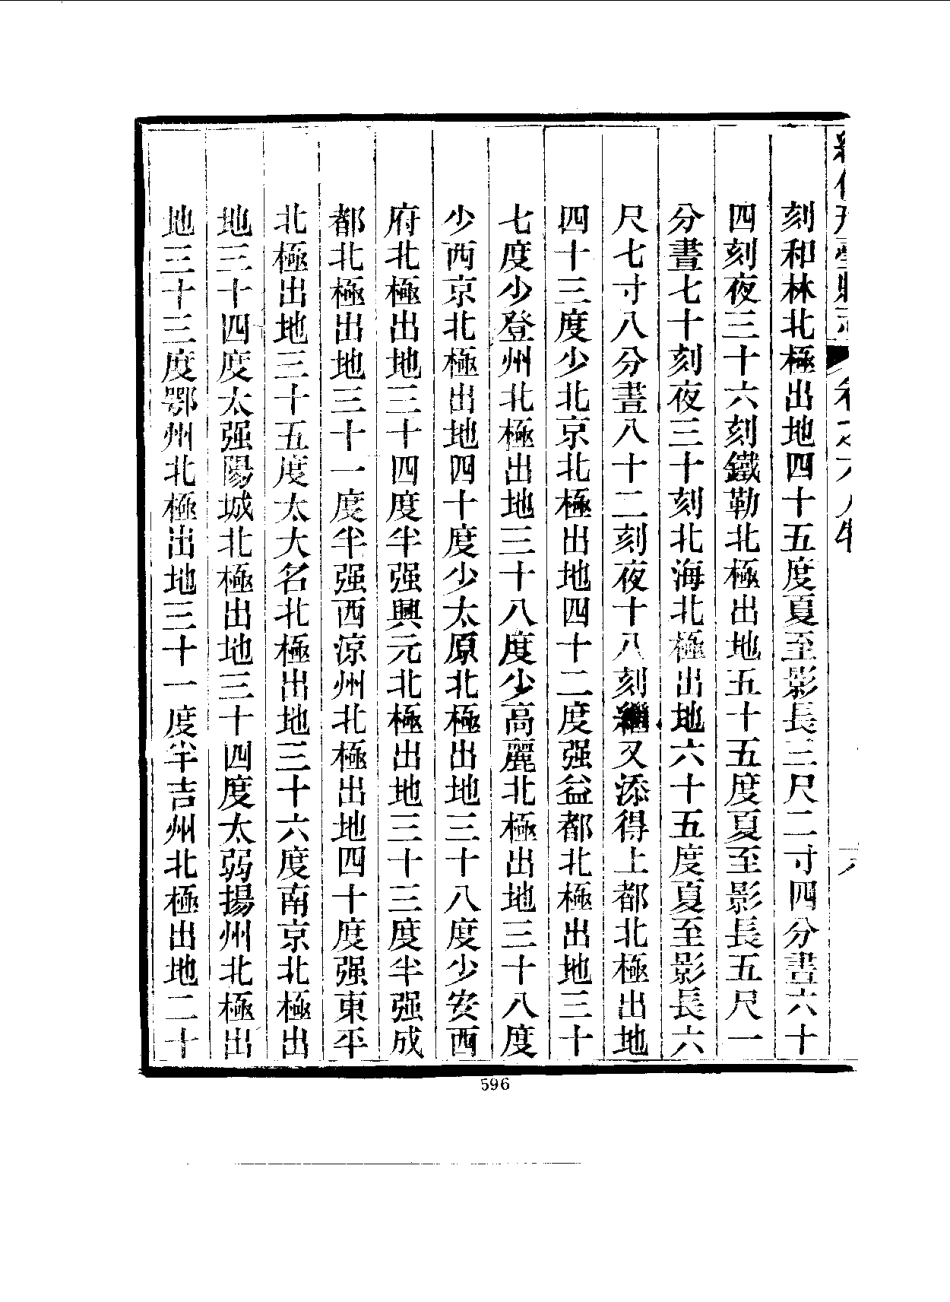 刻和林北極出地四十五度夏至影長三尺二寸四分晝六十
四刻夜三十六刻鐵勒北極出地五十五度夏至影長五尺一
分晝七十刻夜三十刻北海北極出地六十五度夏至影長六
尺七寸八分晝八十二刻夜十八刻繼又添得上都北極出地
四十三度少北京北極出地四十二度强益都北極出地三十
七度少登州北極出地三十八度少高麗北極出地三十八度
少西京北極出地四十度少太原北極出地三十八度少安西
府北極出地三十四度半强興元北極出地三十三度半强成
都北極出地三十一度半强西涼州北極出地四十度强東平
北極出地三十五度太大名北極出地三十六度南京北極出
地三十四度太强陽城北極出地三十四度太弱揚州北極出
地三十三度鄂州北極出地三十一度半吉州北極出地二十
596